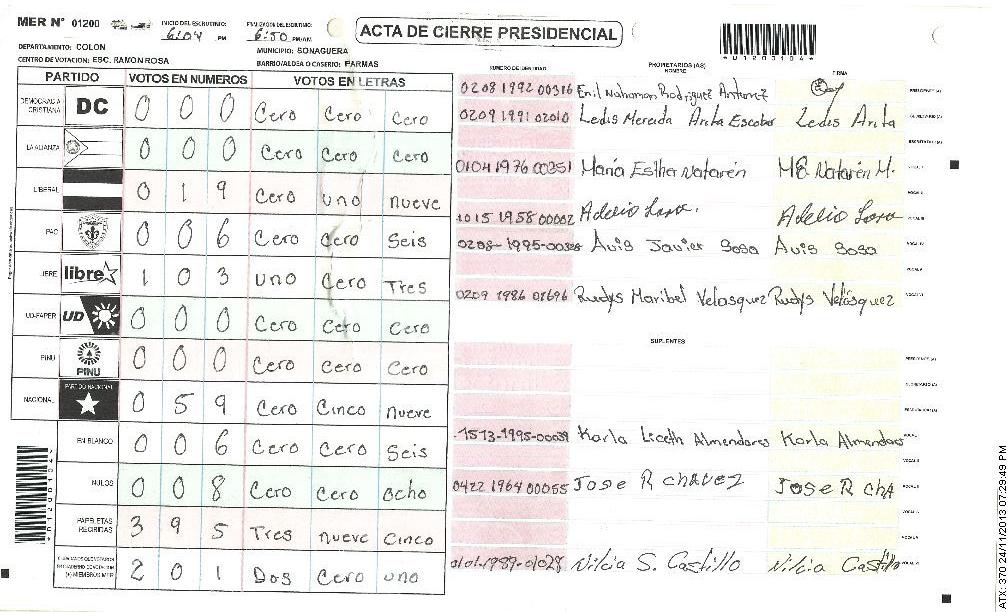 MER N° 01200
INICIO DEL ESCRUTINIO: 6:04 PM
FINALIZACION DEL ESCRUTINIO: 6:50 PM/AM
ACTA DE CIERRE PRESIDENCIAL
DEPARTAMENTO: COLON
MUNICIPIO: SONAGUERA
CENTRO DE VOTACION: ESC. RAMON ROSA
BARRIO/ALDEA O CASERIO: PARMAS
PARTIDO VOTOS EN NUMEROS VOTOS EN LETRAS
DEMOCRACIA CRISTIANA DC 0 0 0 Cero Cero Cero
LA ALIANZA 0 0 0 Cero Cero Cero
LIBERAL 0 1 9 Cero uno nueve
PAC 0 0 6 Cero Cero Seis
LIBRE libre 1 0 3 uno Cero Tres
UD-FAPER UD 0 0 0 Cero Cero Cero
PINU PINU 0 0 0 Cero Cero Cero
NACIONAL PARTIDO NACIONAL 0 5 9 Cero Cinco nueve
EN BLANCO 0 0 6 Cero Cero Seis
NULOS 0 0 8 Cero Cero ocho
PAPELETAS RECIBIDAS 3 9 5 Tres nueve Cinco
(+) MIEMBROS MER 2 0 1 Dos Cero uno
NUMERO DE IDENTIDAD PROPIETARIOS (AS) NOMBRE FIRMA
0208 1992 00316 Enil Nahaman Rodriguez PRESIDENTE (A)
0209 1991 02010 Ledis Mercida Arita Escobar Ledis Arita SECRETARIO (A)
ESCRUTADOR (A)
0104 1976 00351 María Esther Natarén ME Natarén M. VOCAL I
VOCAL II
1015 1958 00002 Adelio Lara. Adelio Lara VOCAL III
0208-1995-00328 Avis Javier Sosa Avis Sosa VOCAL IV
VOCAL V
0209 1986 01696 Rudys Maribel Velasquez Rudys Velásquez VOCAL VI
SUPLENTES
PRESIDENTE (A)
SECRETARIO (A)
ESCRUTADOR (A)
1513-1995-00039 Karla Liceth Almendares Karla Almendares VOCAL I
VOCAL II
0422 1964 00055 Jose R chavez Jose R chA VOCAL III
VOCAL IV
VOCAL V
0101-1989-01028 Nilcia S. Castillo Nilcia Castillo VOCAL VI
*01200104*
*01200104*
ATX: 370 24/11/2013 07:29:49 PM